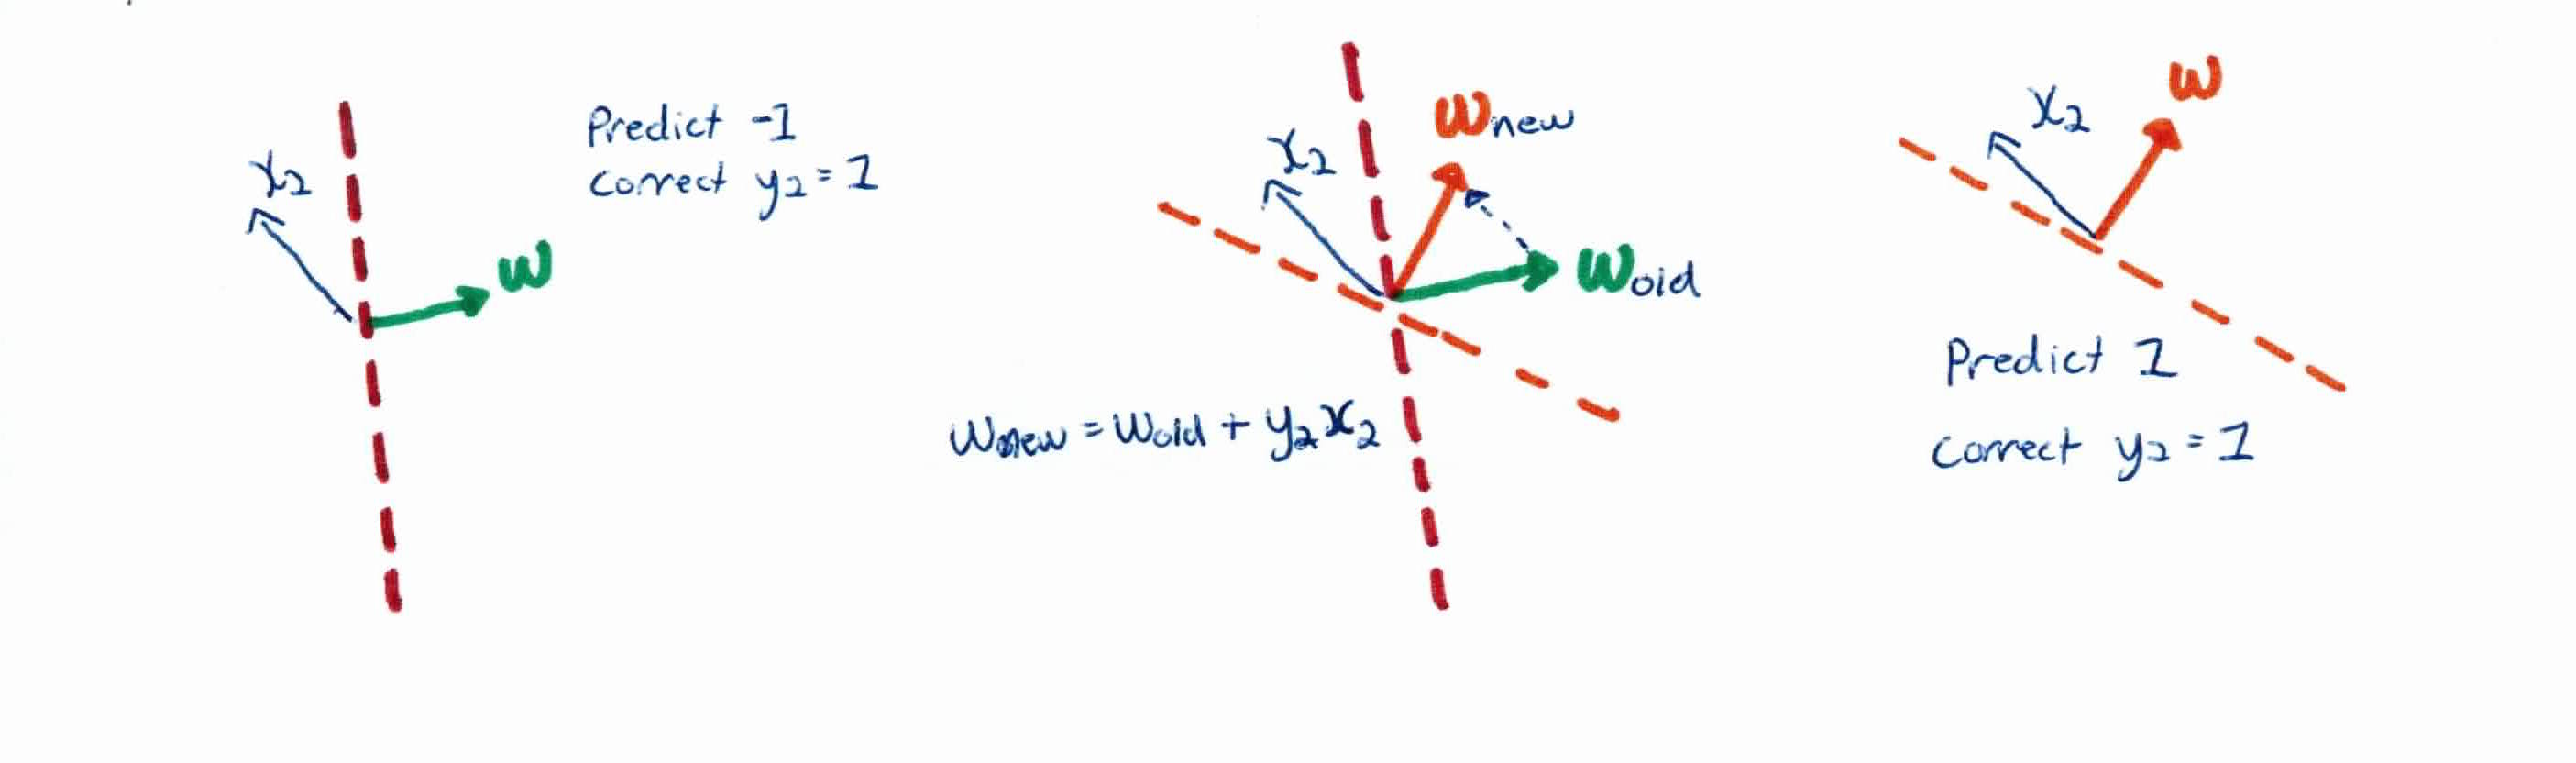 x2
Predict -1
correct y2 = 1
w
wnew
x2
wold
wnew = wold + y2x2
w
x2
Predict 1
correct y2 = 1